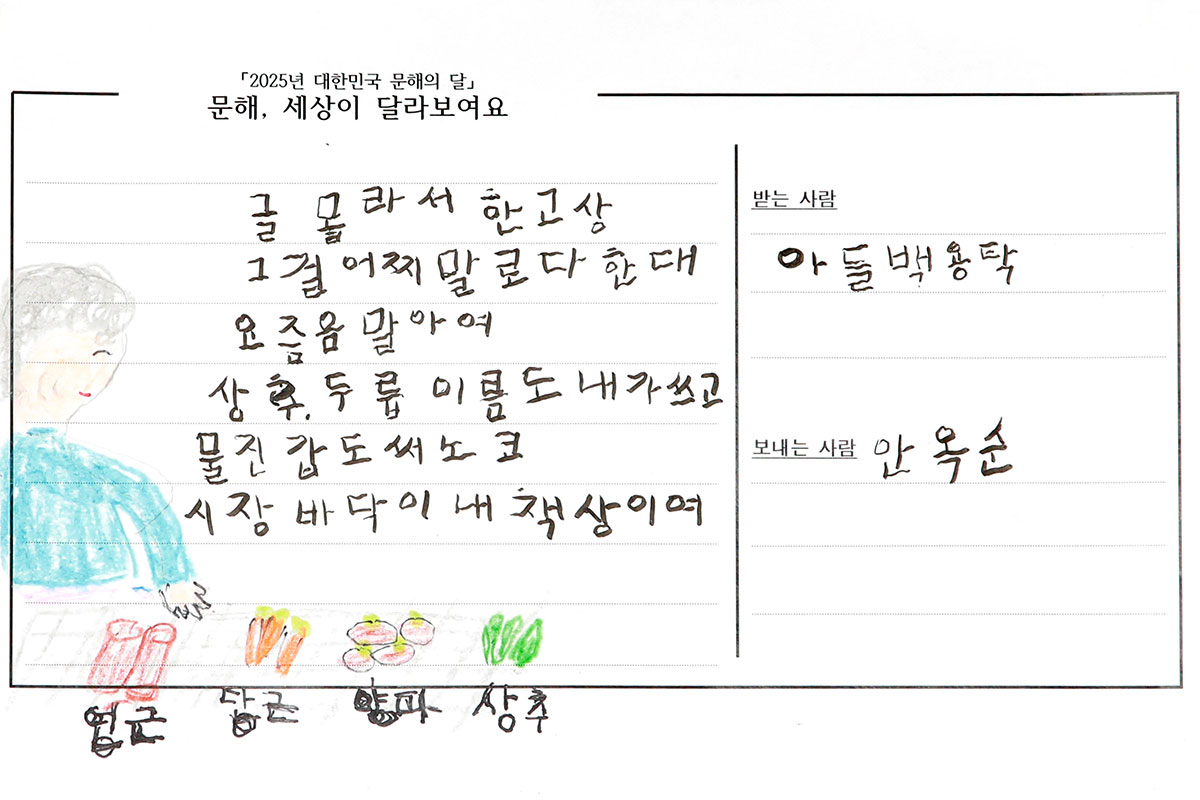 「2025년 대한민국 문해의 달」
문해, 세상이 달라보여요
글 몰라서 한고상
그걸 어찌 말로다 한대
요즘음 말아여
상추, 두릅 이름도 내가쓰고
물진갑도 써노코
시장 바닥이 내 책상이여
받는 사람
아들백용탁
보내는 사람 안옥순
당근 양파 상추